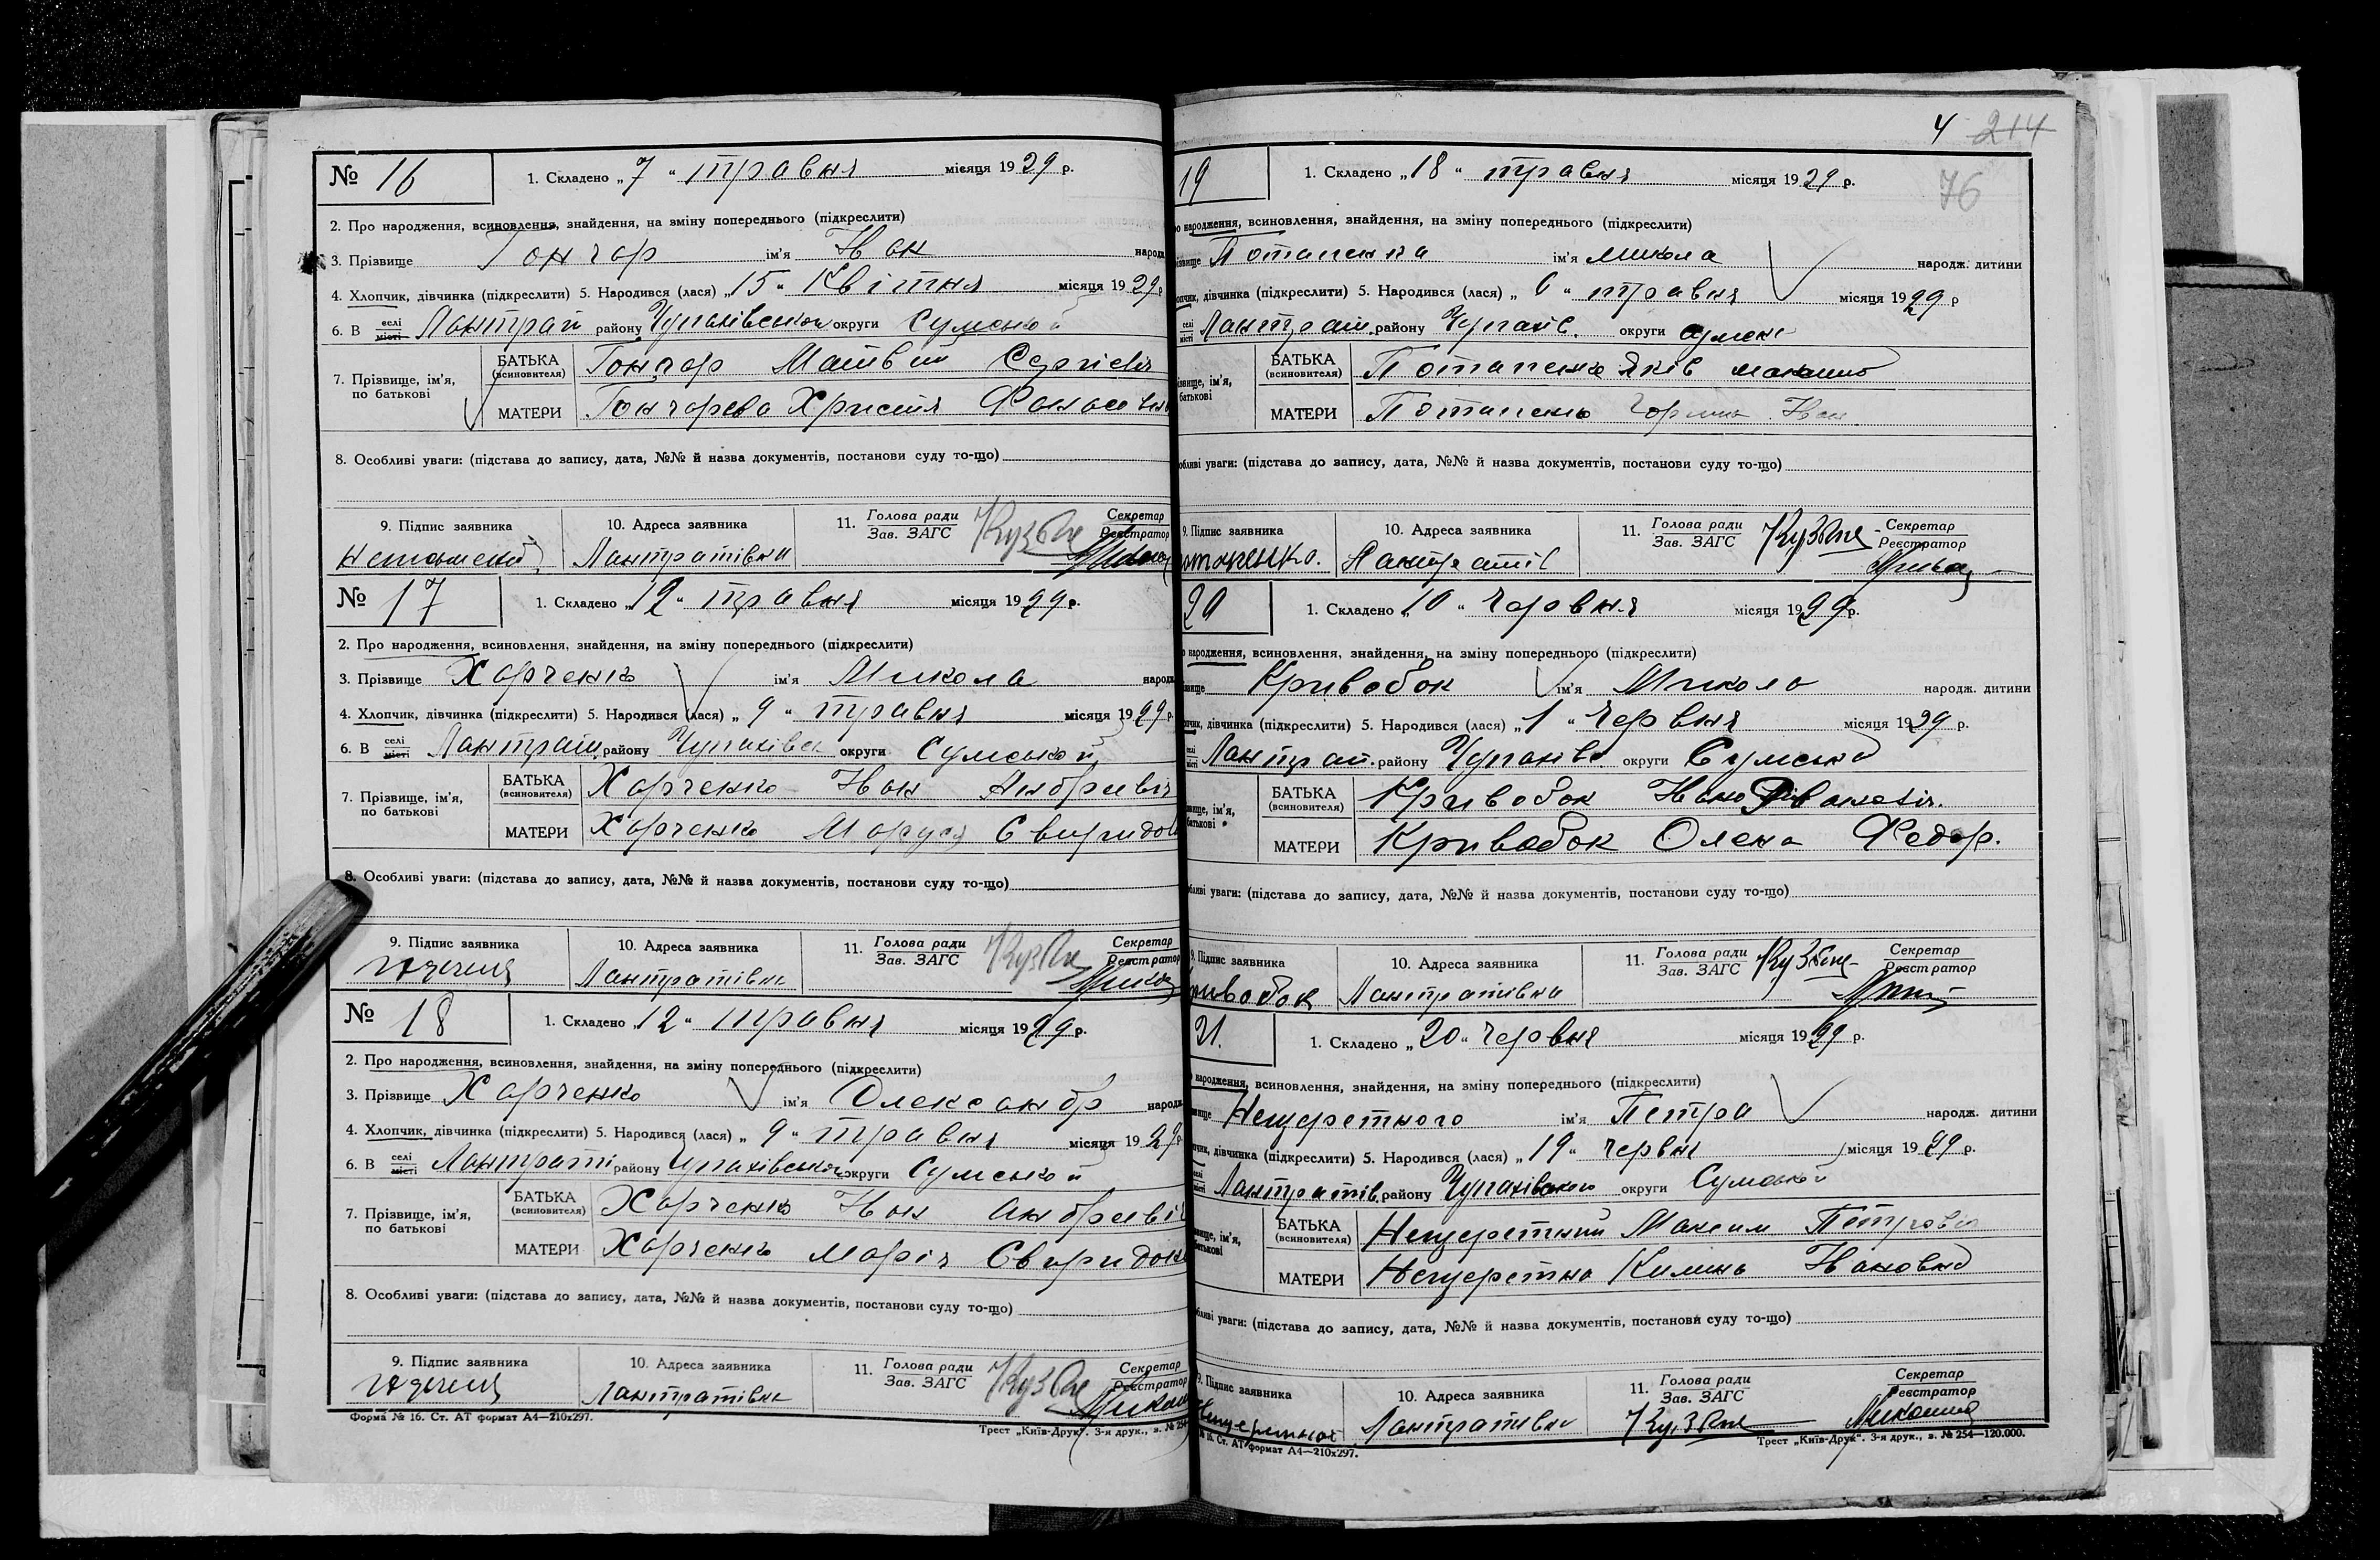 № 16 1. Складено „7“ травня місяця 1929 р.
2. Про народження, всиновлення, знайдення, на зміну попереднього (підкреслити)
3. Прізвище Гончар ім'я Іван народж
4. Хлопчик, дівчинка (підкреслити) 5. Народився (лася) „15“ Квітня місяця 1929 р
6. В селі місті Лантрат району Чупахівської округи Сумської
7. Прізвище, ім'я, по батькові БАТЬКА (всиновителя) Гончар Матвій Сергієвич
МАТЕРИ Гончарева Христя
8. Особливі уваги: (підстава до запису, дата, №№ й назва документів, постанови суду то-що)
9. Підпис заявника 10. Адреса заявника 11. Голова ради Зав. ЗАГС Секретар Реєстратор
Лантратівка
№ 17 1. Складено „12“ травня місяця 1929 р.
2. Про народження, всиновлення, знайдення, на зміну попереднього (підкреслити)
3. Прізвище Харченко ім'я Микола народж
4. Хлопчик, дівчинка (підкреслити) 5. Народився (лася) „9“ травня місяця 1929 р.
6. В селі місті Лантрат району Чупахівськ округи Сумської
7. Прізвище, ім'я, по батькові БАТЬКА (всиновителя) Харченко Іван Андрієвіч
МАТЕРИ Харченко Маруся Свиридов
8. Особливі уваги: (підстава до запису, дата, №№ й назва документів, постанови суду то-що)
9. Підпис заявника 10. Адреса заявника 11. Голова ради Зав. ЗАГС Секретар Реєстратор
Лантратівка
№ 18 1. Складено „12“ травня місяця 1929 р.
2. Про народження, всиновлення, знайдення, на зміну попереднього (підкреслити)
3. Прізвище Харченко ім'я Олександр народж
4. Хлопчик, дівчинка (підкреслити) 5. Народився (лася) „9“ травня місяця 1929 р.
6. В селі місті Лантраті району Чупахівської округи Сумської
7. Прізвище, ім'я, по батькові БАТЬКА (всиновителя) Харченко Іван Андрієвіч
МАТЕРИ Харченко Марія Свиридон
8. Особливі уваги: (підстава до запису, дата, №№ й назва документів, постанови суду то-що)
9. Підпис заявника 10. Адреса заявника 11. Голова ради Зав. ЗАГС Секретар Реєстратор
Лантратівка
Форма № 16. Ст. АТ формат А4—210x297.
Трест „Київ-Друк“. 3-я друк., з. № 254
4 214
76
19 1. Складено „18“ травня місяця 1929 р.
народження, всиновлення, знайдення, на зміну попереднього (підкреслити)
Потапенка ім'я Микола народж. дитини
дівчинка (підкреслити) 5. Народився (лася) „6“ травня місяця 1929 р
Лантрат. району Чупахів. округи Сумськ
БАТЬКА (всиновителя) Потапенко Яків
МАТЕРИ Потапенко Іван
уваги: (підстава до запису, дата, №№ й назва документів, постанови суду то-що)
9. Підпис заявника 10. Адреса заявника 11. Голова ради Зав. ЗАГС Секретар Реєстратор
Лантратів
20 1. Складено „10“ червня місяця 1929 р.
народження, всиновлення, знайдення, на зміну попереднього (підкреслити)
Кривобок ім'я Микола народж. дитини
дівчинка (підкреслити) 5. Народився (лася) „1“ червня місяця 1929 р.
Лантрат. району Чупахівс округи Сумської
БАТЬКА (всиновителя) Кривобок
МАТЕРИ Кривобок Олена Федор.
уваги: (підстава до запису, дата, №№ й назва документів, постанови суду то-що)
9. Підпис заявника 10. Адреса заявника 11. Голова ради Зав. ЗАГС Секретар Реєстратор
ривобок Лантратівка
21. 1. Складено „20“ червня місяця 1929 р.
народження, всиновлення, знайдення, на зміну попереднього (підкреслити)
Нещеретного ім'я Петра народж. дитини
дівчинка (підкреслити) 5. Народився (лася) „19“ червня місяця 1929 р.
Лантратів. району Чупахівського округи Сумської
БАТЬКА (всиновителя) Нещеретний Максим Петрович
МАТЕРИ Нещеретна Килина Івановна
уваги: (підстава до запису, дата, №№ й назва документів, постанови суду то-що)
9. Підпис заявника 10. Адреса заявника 11. Голова ради Зав. ЗАГС Секретар Реєстратор
Лантратівка
№ 16. Ст. АТ формат А4—210x297.
Трест „Київ-Друк“. 3-я друк., з. № 254—120.000.